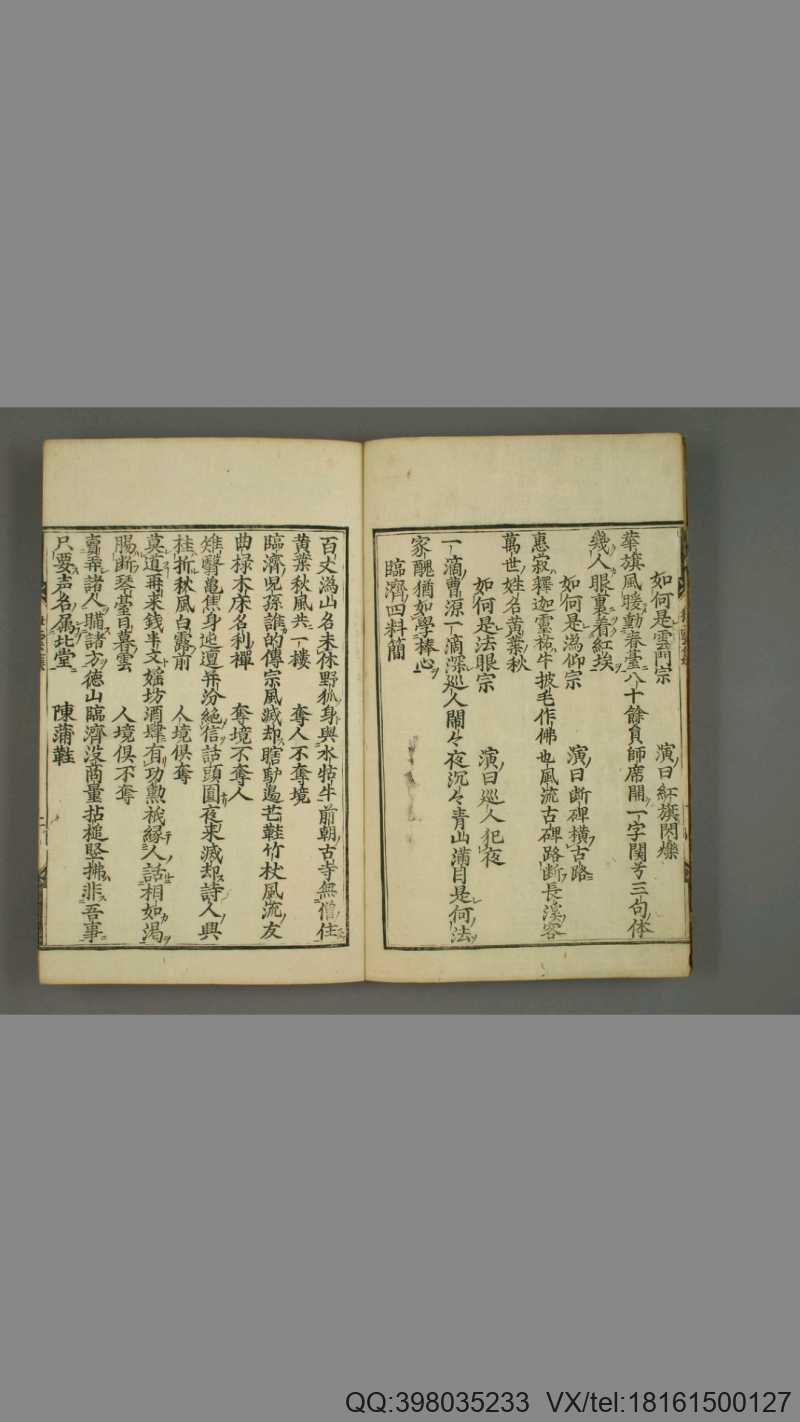 如何是雲門宗　演曰紅旗閃爍
華旗風暖動春臺八十餘員師席開一字関兮三句体
幾人眼裏着紅埃
如何是溈仰宗　演曰断碑横古路
惠寂釋迦靈祐牛披毛作佛也風流古碑路断長溪客
萬世姓名黄葉秋
如何是法眼宗　演曰巡人犯夜
一滴曹源一滴深巡人閙々夜沉々青山滿目是何法
家醜猶如學捧心
臨濟四料簡
百丈溈山名未休野狐身與水牯牛前朝古寺無僧住
黄葉秋風共一樓　奪人不奪境
臨濟児孫誰的傳宗風滅却瞎驢邊芒鞋竹杖風流友
曲椂木床名利禪　奪境不奪人
雉翳亀焦身迍邅并汾絶信話頭圓夜来滅却詩人興
桂折秋風白露前　人境倶奪
莫道再来錢半文婬坊酒肆有功勲祗縁人話相如渇
腸断琴臺日暮雲　人境倶不奪
賣弄諸人瞞諸方德山臨濟没商量拈槌竪拂非吾事
只要声名属北堂　陳蒲鞋
QQ:398035233 VX/tel:18161500127